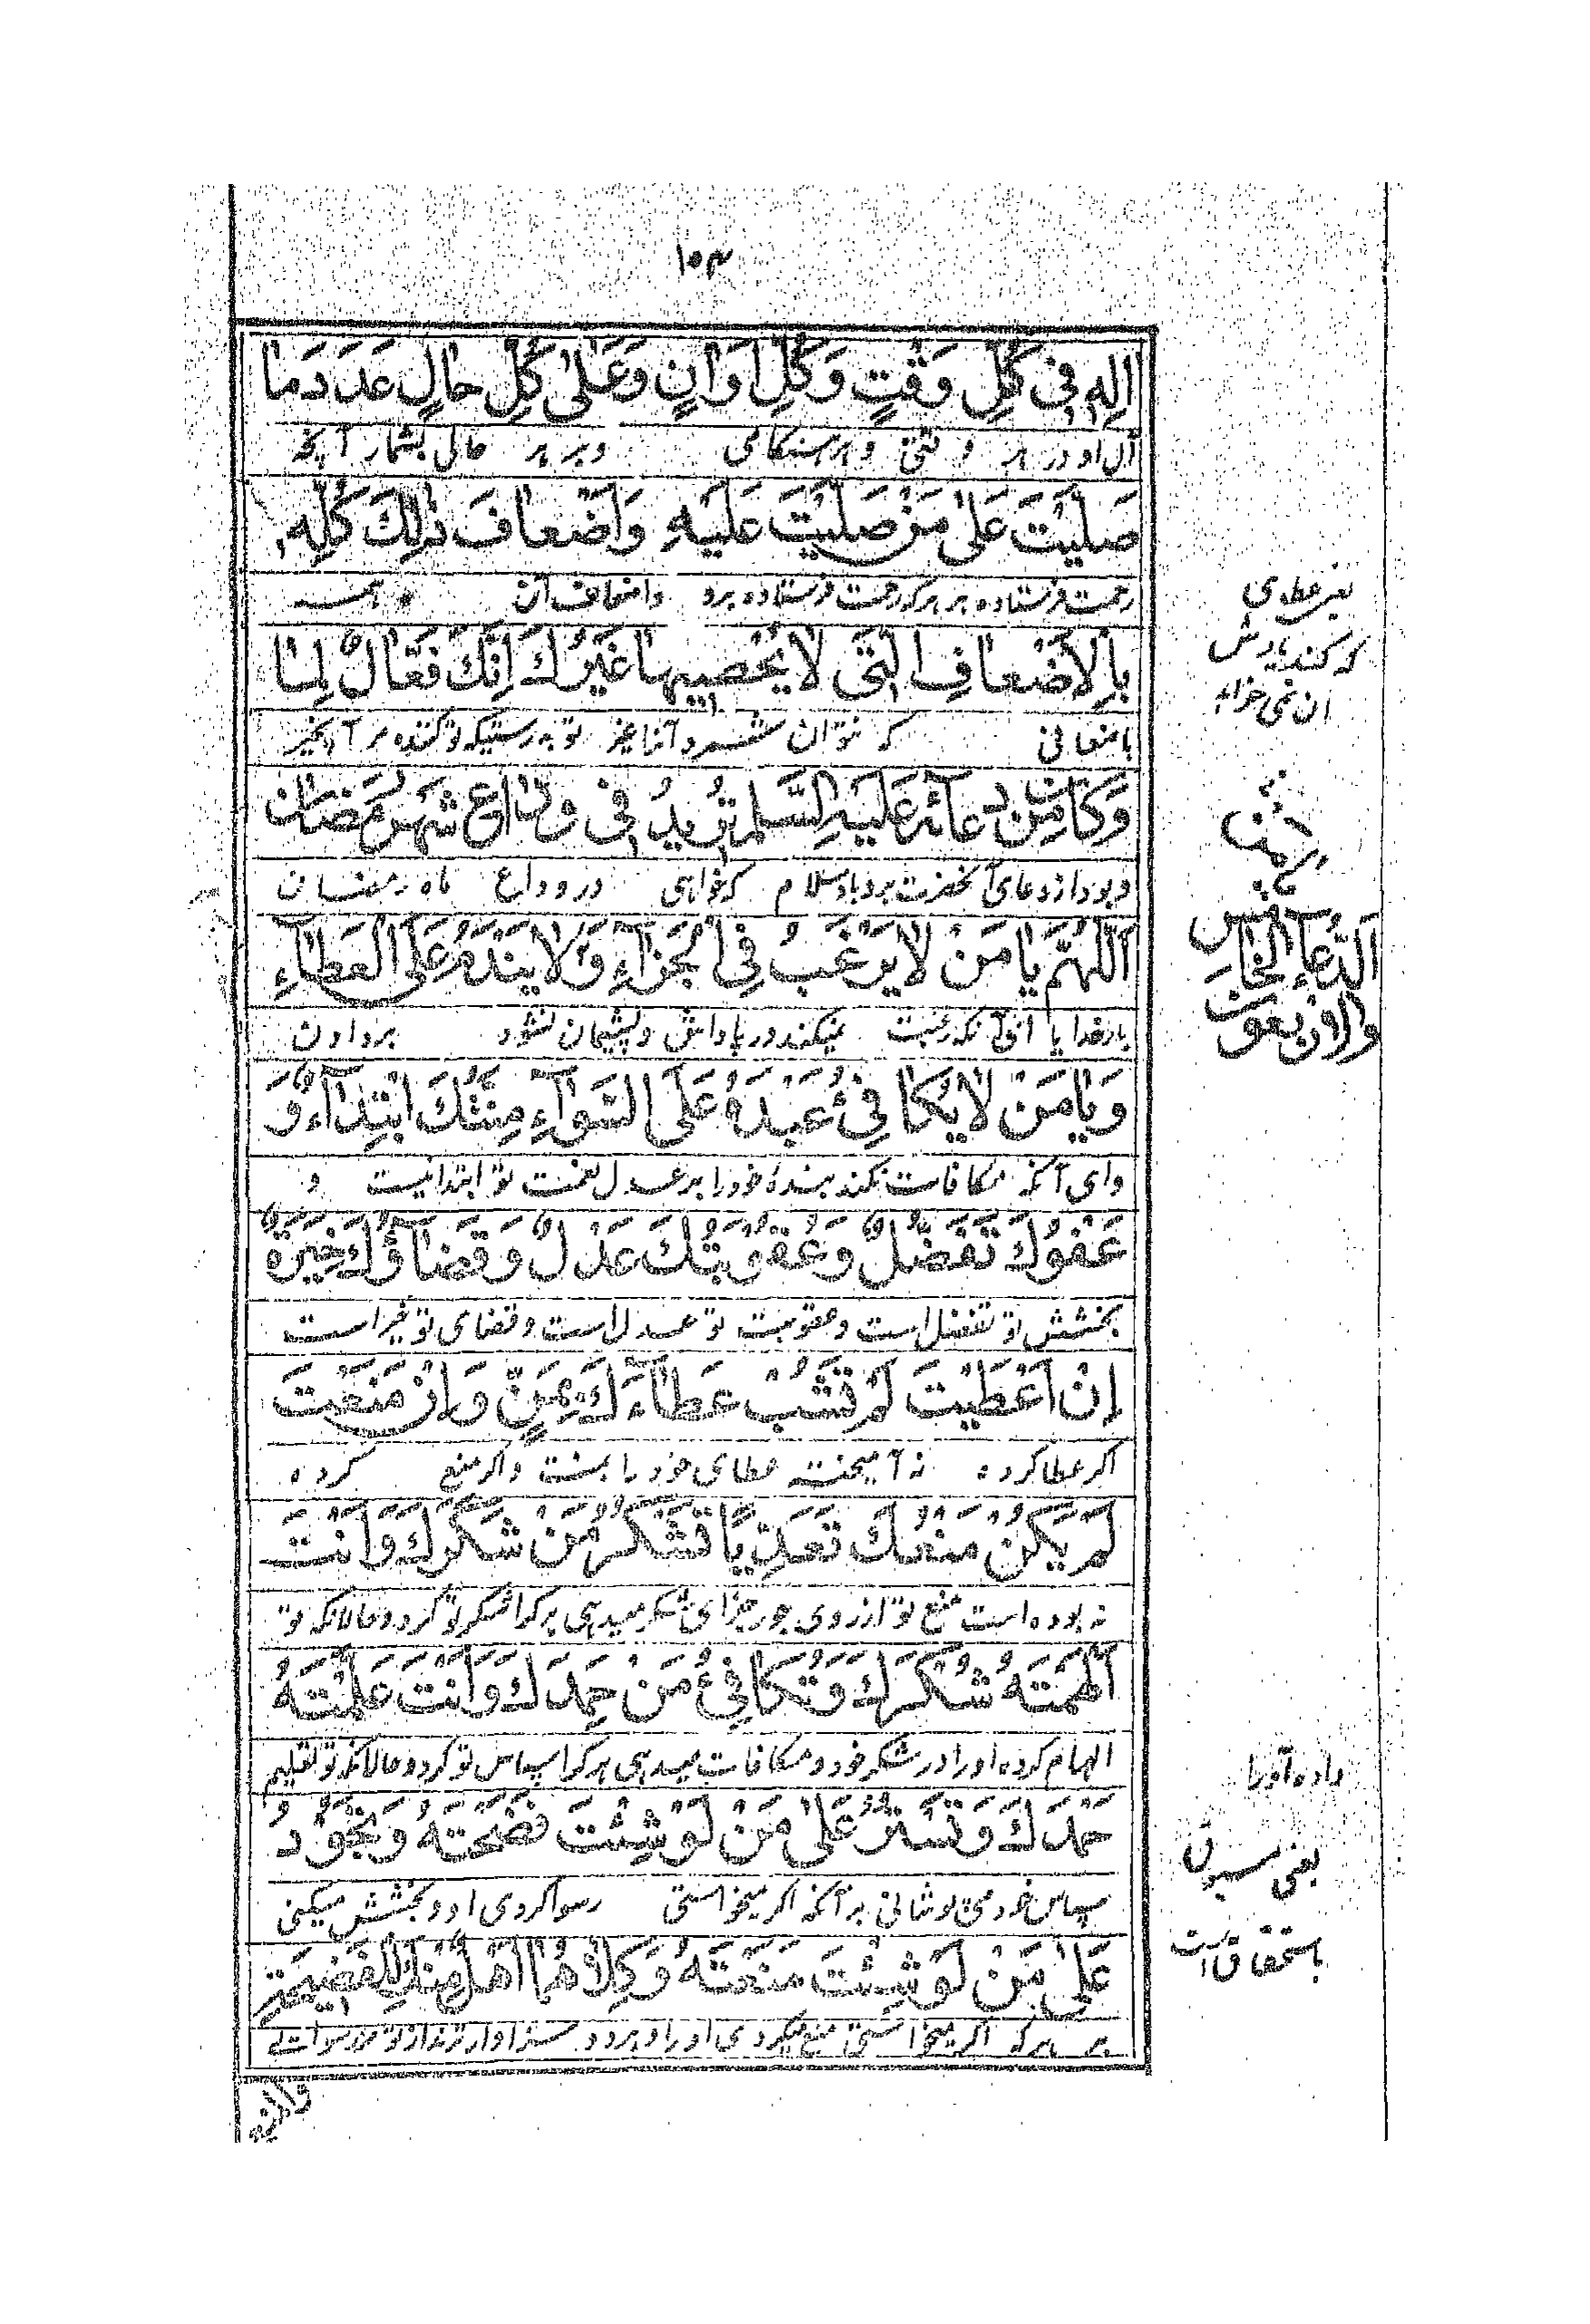 ١٠٣
الِهِ فِي كُلِّ وَقْتٍ وَكُلِّ اَوَانٍ وَعَلىٰ كُلِّ حَالٍ عَدَدَ مَا
آل او در هر وقتی و هر هنگامی و بر هر حال بشمار آنچه
صَلَّيْتَ عَلىٰ مَنْ صَلَّيْتَ عَلَيْهِ وَاَضْعَافَ ذٰلِكَ كُلِّهِ
رحمت فرستاده بر هر که رحمت فرستاده برو و اضعاف آن همه
بِالْاَضْعَافِ الَّتِي لَا يُحْصِيهَا غَيْرُكَ اِنَّكَ فَعَّالٌ لِمَا
باضعافی که نتوان شمرد آنها غیر تو بدرستیکه تو کننده مر آنچیز
یعنی عطای
که کند پاداش
آن نمی خواهد
وَكَانَ مِنْ دُعَائِهِ عَلَيْهِ السَّلٰمُ تُرِيدُ فِي وَدَاعِ شَهْرِ رَمَضَانَ
و بود از دعای آنحضرت برو باد سلام که خواهی در وداع ماه رمضان
اَلدُّعَاءُ الْخَامِسُ
وَالْاَرْبَعُونَ
اَللّٰهُمَّ يَا مَنْ لَا يَرْغَبُ فِي الْجَزَآءِ وَلَا يَنْدَمُ عَلَى الْعَطَآءِ
بارخدایا ای آنکه رغبت نمیکند در پاداش و پشیمان نشود بر دادن
وَيَا مَنْ لَا يُكَافِئُ عَبْدَهُ عَلَى السَّوَآءِ مِنَّتُكَ ابْتِدَآءٌ وَ
و ای آنکه مکافات نکند بنده خود را بر عدل نعمت تو ابتداییست و
عَفْوُكَ تَفَضُّلٌ وَعُقُوبَتُكَ عَدْلٌ وَقَضَآؤُكَ خِيَرَةٌ
بخشش تو تفضل است و عقوبت تو عدل است و قضای تو خیر است
اِنْ اَعْطَيْتَ لَمْ تَشُبْ عَطَآءَكَ بِمَنٍّ وَاِنْ مَنَعْتَ
اکر عطا کرده نه آمیخته عطای خود را بمنت و اکر منع کرده
لَمْ يَكُنْ مَنْعُكَ تَعَدِّيًا تَشْكُرُ مَنْ شَكَرَكَ وَاَنْتَ
نه بوده است منع تو از روی جور جزای شکر میدهی هر که را شکر تو کرد و حالانکه تو
اَلْهَمْتَهُ شُكْرَكَ وَتُكَافِئُ مَنْ حَمِدَكَ وَاَنْتَ عَلَّمْتَهُ
الهام کرده او را در شکر خود و مکافات میدهی هر که را سپاس تو کرد و حالانکه تو تعلیم
داده او را
حَمْدَكَ وَتَسْتُرُ عَلىٰ مَنْ لَوْ شِئْتَ فَضَحْتَهُ وَتَجُودُ
سپاس خود می پوشانی بر آنکه اکر میخواستی رسوا کردی او و بخشش میکنی
عَلىٰ مَنْ لَوْ شِئْتَ مَنَعْتَهُ وَكِلَاهُمَا اَهْلٌ مِنْكَ لِلْفَضِيحَةِ
بر هر که اکر میخواستی منع میکردی او را و هر دو سزاوارترند از تو مر رسوائی
باستحقاق است